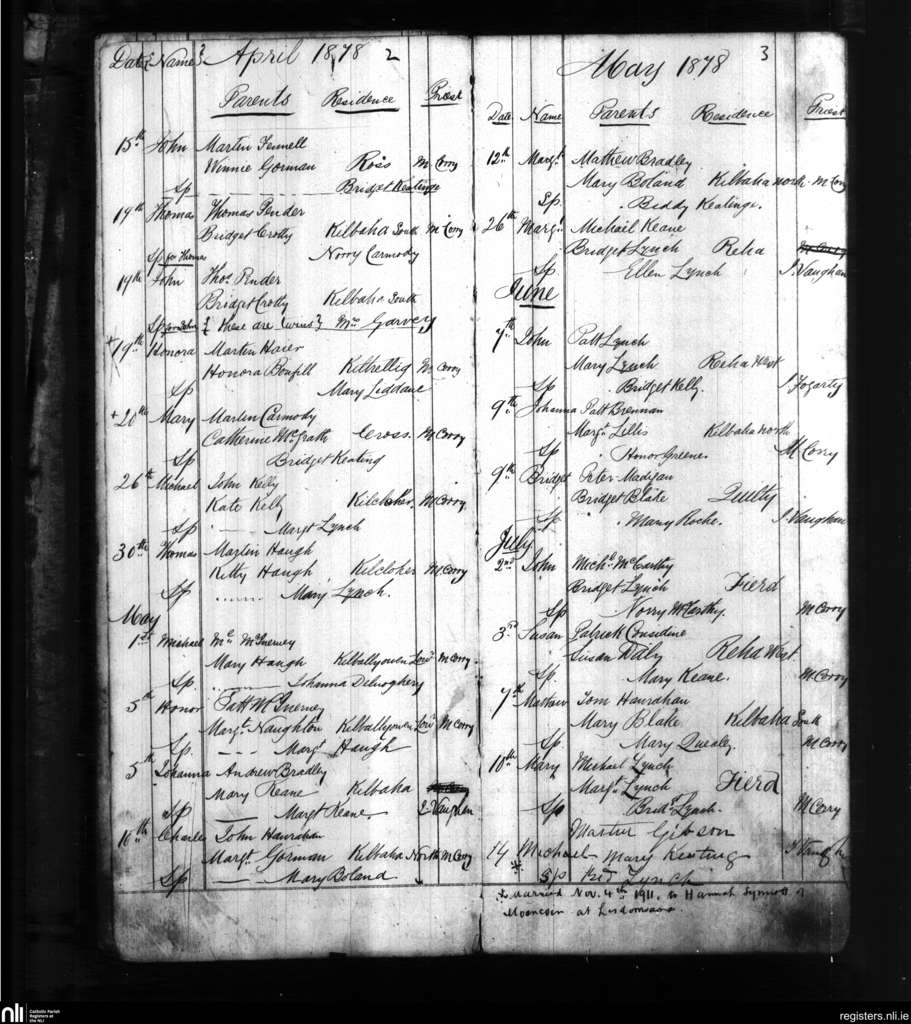 Date & Names April 1878 2
Parents Residence Priest
15th John Martin Fennell
Winnie Gorman Ross McCorry
Sp Bridget Keatinge
19th Thomas Thomas Pender
Bridget Crotty Kilbaha South McCorry
Sp for Thomas Norry Carmody
19th John Thos Pender
Bridget Crotty Kilbaha South
Sp for John { these are twins } Mrs Garvey
+ 19th Honora Martin Haier
Honora Bonfill Kiltrellig McCorry
Sp Mary Liddane
+ 20th Mary Martin Carmody
Catherine McGrath Cross. McCorry
Sp Bridget Keating
26th Michael John Kelly
Kate Kelly Kilcloher McCorry
Sp Margt Lynch
30th Thomas Martin Haugh
Kitty Haugh Kilcloher McCorry
Sp Mary Lynch.
May
1st Michael McInerney
Mary Haugh Kilballyowen Lowr McCorry
Sp Johanna Deloughery
5th Honor Patt McInerney
Margt Naughton Kilballyowen Lowr McCorry
Sp. Margt Haugh
5th Johanna Andrew Bradley
Mary Keane Kilbaha
Sp Margt Keane Vaughan
10th Charles John Hanrahan
Margt. Gorman Kilbaha North McCorry
Sp Mary Boland
May 1878 3
Date Name Parents Residence Priest
12th Margt. Mathew Bradley
Mary Boland Kilbaha North McCorry
Sp. Beddy Keatinge.
26th Margt. Michael Keane
Bridget Lynch Reha
Sp Ellen Lynch J. Vaughan
June
7th John Patt Lynch
Mary Lynch Reha West
Sp Bridget Kelly. J Fogarty
9th Johanna Patt Brennan
Margt. Lillis Kilbaha North
Sp Honor Greene. McCorry
9th Bridget Peter Madigan
Bridget Blake Quilty
Sp. Mary Roche. J. Vaughan
July
2nd John Michl McCarthy
Bridget Lynch Fierd
Sp Norry McCarthy McCorry
3rd Susan Patrick Considine
Susan Daly Reha West
Sp. Mary Keane. McCorry
7th Mathew Tom Hanrahan
Mary Blake Kilbaha South
Sp Mary Quealy. McCorry
10th Mary Michael Lynch
Margt. Lynch Fierd
Sp Bridt Lynch. McCorry
Martin Gibson
14 Michael Mary Keating
* Sp Lynch
* Married Nov. 4th 1911, to Hannah
at
nli Catholic Parish
Registers at
the NLI
registers.nli.ie